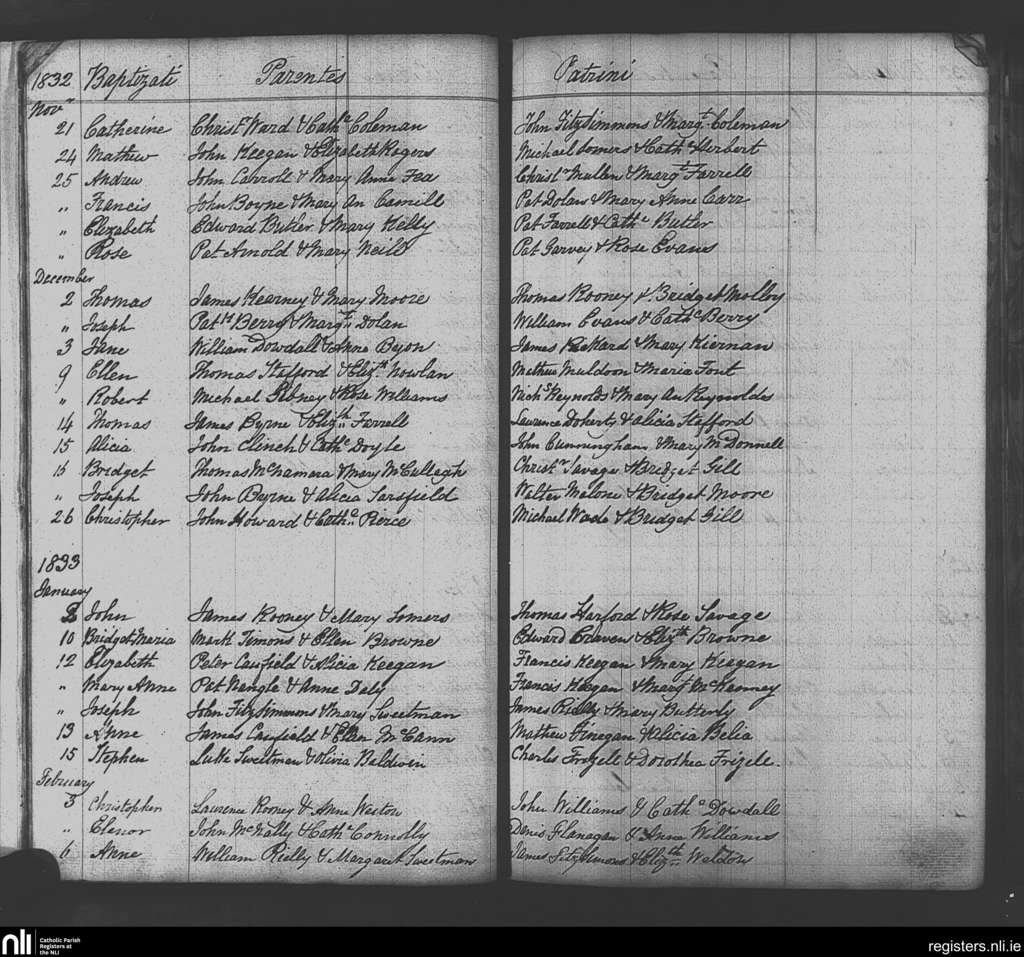 1832 Baptizati Parentes Patrini
Novr
21 Catherine Christr Ward & Catha Coleman John Fitzsimmons & Margt Coleman
24 Mathew John Keegan & Elizabeth Rogers Michael Somers & Cath Herbert
25 Andrew John Carroll & Mary Anne Fea Christr Mullen & Margt Farrell
" Francis John Boyne & Mary An Camill Pat Dolan & Mary Anne Carr
" Elizabeth Edward Butler & Mary Kelly Pat Farrell & Cathe Butler
" Rose Pat Arnold & Mary Neill Pat Garvey & Rose Evans
December
2 Thomas James Kearney & Mary Moore Thomas Rooney & Bridget Molloy
" Joseph Patk Berry & Margt Dolan William Evans & Cathe Berry
3 Jane William Dowdall & Anne Byon James Rickard & Mary Kiernan
9 Ellen Thomas Stafford & Elizth Nowlan Mathew Muldoon & Maria Font
" Robert Michael Gibney & Rose Williams Nichs Reynolds & Mary An Reynoldes
14 Thomas James Byrne & Elizth Farrell Lawrence Doherty & Alicia Stafford
15 Alicia John Clinch & Cathe Doyle John Cunningham & Mary McDonnell
16 Bridget Thomas McNamara & Mary McCullagh Christr Savage & Bridget Gill
" Joseph John Byrne & Alicia Sarsfield Walter Malone & Bridget Moore
26 Christopher John Howard & Catha Pierce Michael Wade & Bridget Gill
1833
January
John James Rooney & Mary Somers Thomas Harford & Rose Savage
10 Bridget Maria Mark Temons & Ellen Browne Edward Craven & Elizth Browne
12 Elizabeth Peter Caufield & Alicia Keegan Francis Keegan & Mary Keegan
" Mary Anne Pat Nangle & Anne Daly Francis Keegan & Margt McKenney
" Joseph John FitzSimmons & Mary Sweetman James Rielly & Mary Butterly
13 Anne James Caufield & Ellen McCann Mathew Finegan & Alicia Belia
15 Stephen Luke Sweetman & Olivia Baldwin Charles Frizele & Dorothea Frizele.
February
3 Christopher Lawrence Rooney & Ann Weston John Williams & Catha Dowdall
" Elenor John McNally & Cathe Connolly Denis Flanagan & Anna Williams
6 Anne William Rielly & Margaret Sweetman James Fitzsimons & Elizth Weldon
nli Catholic Parish
Registers at
the NLI
registers.nli.ie